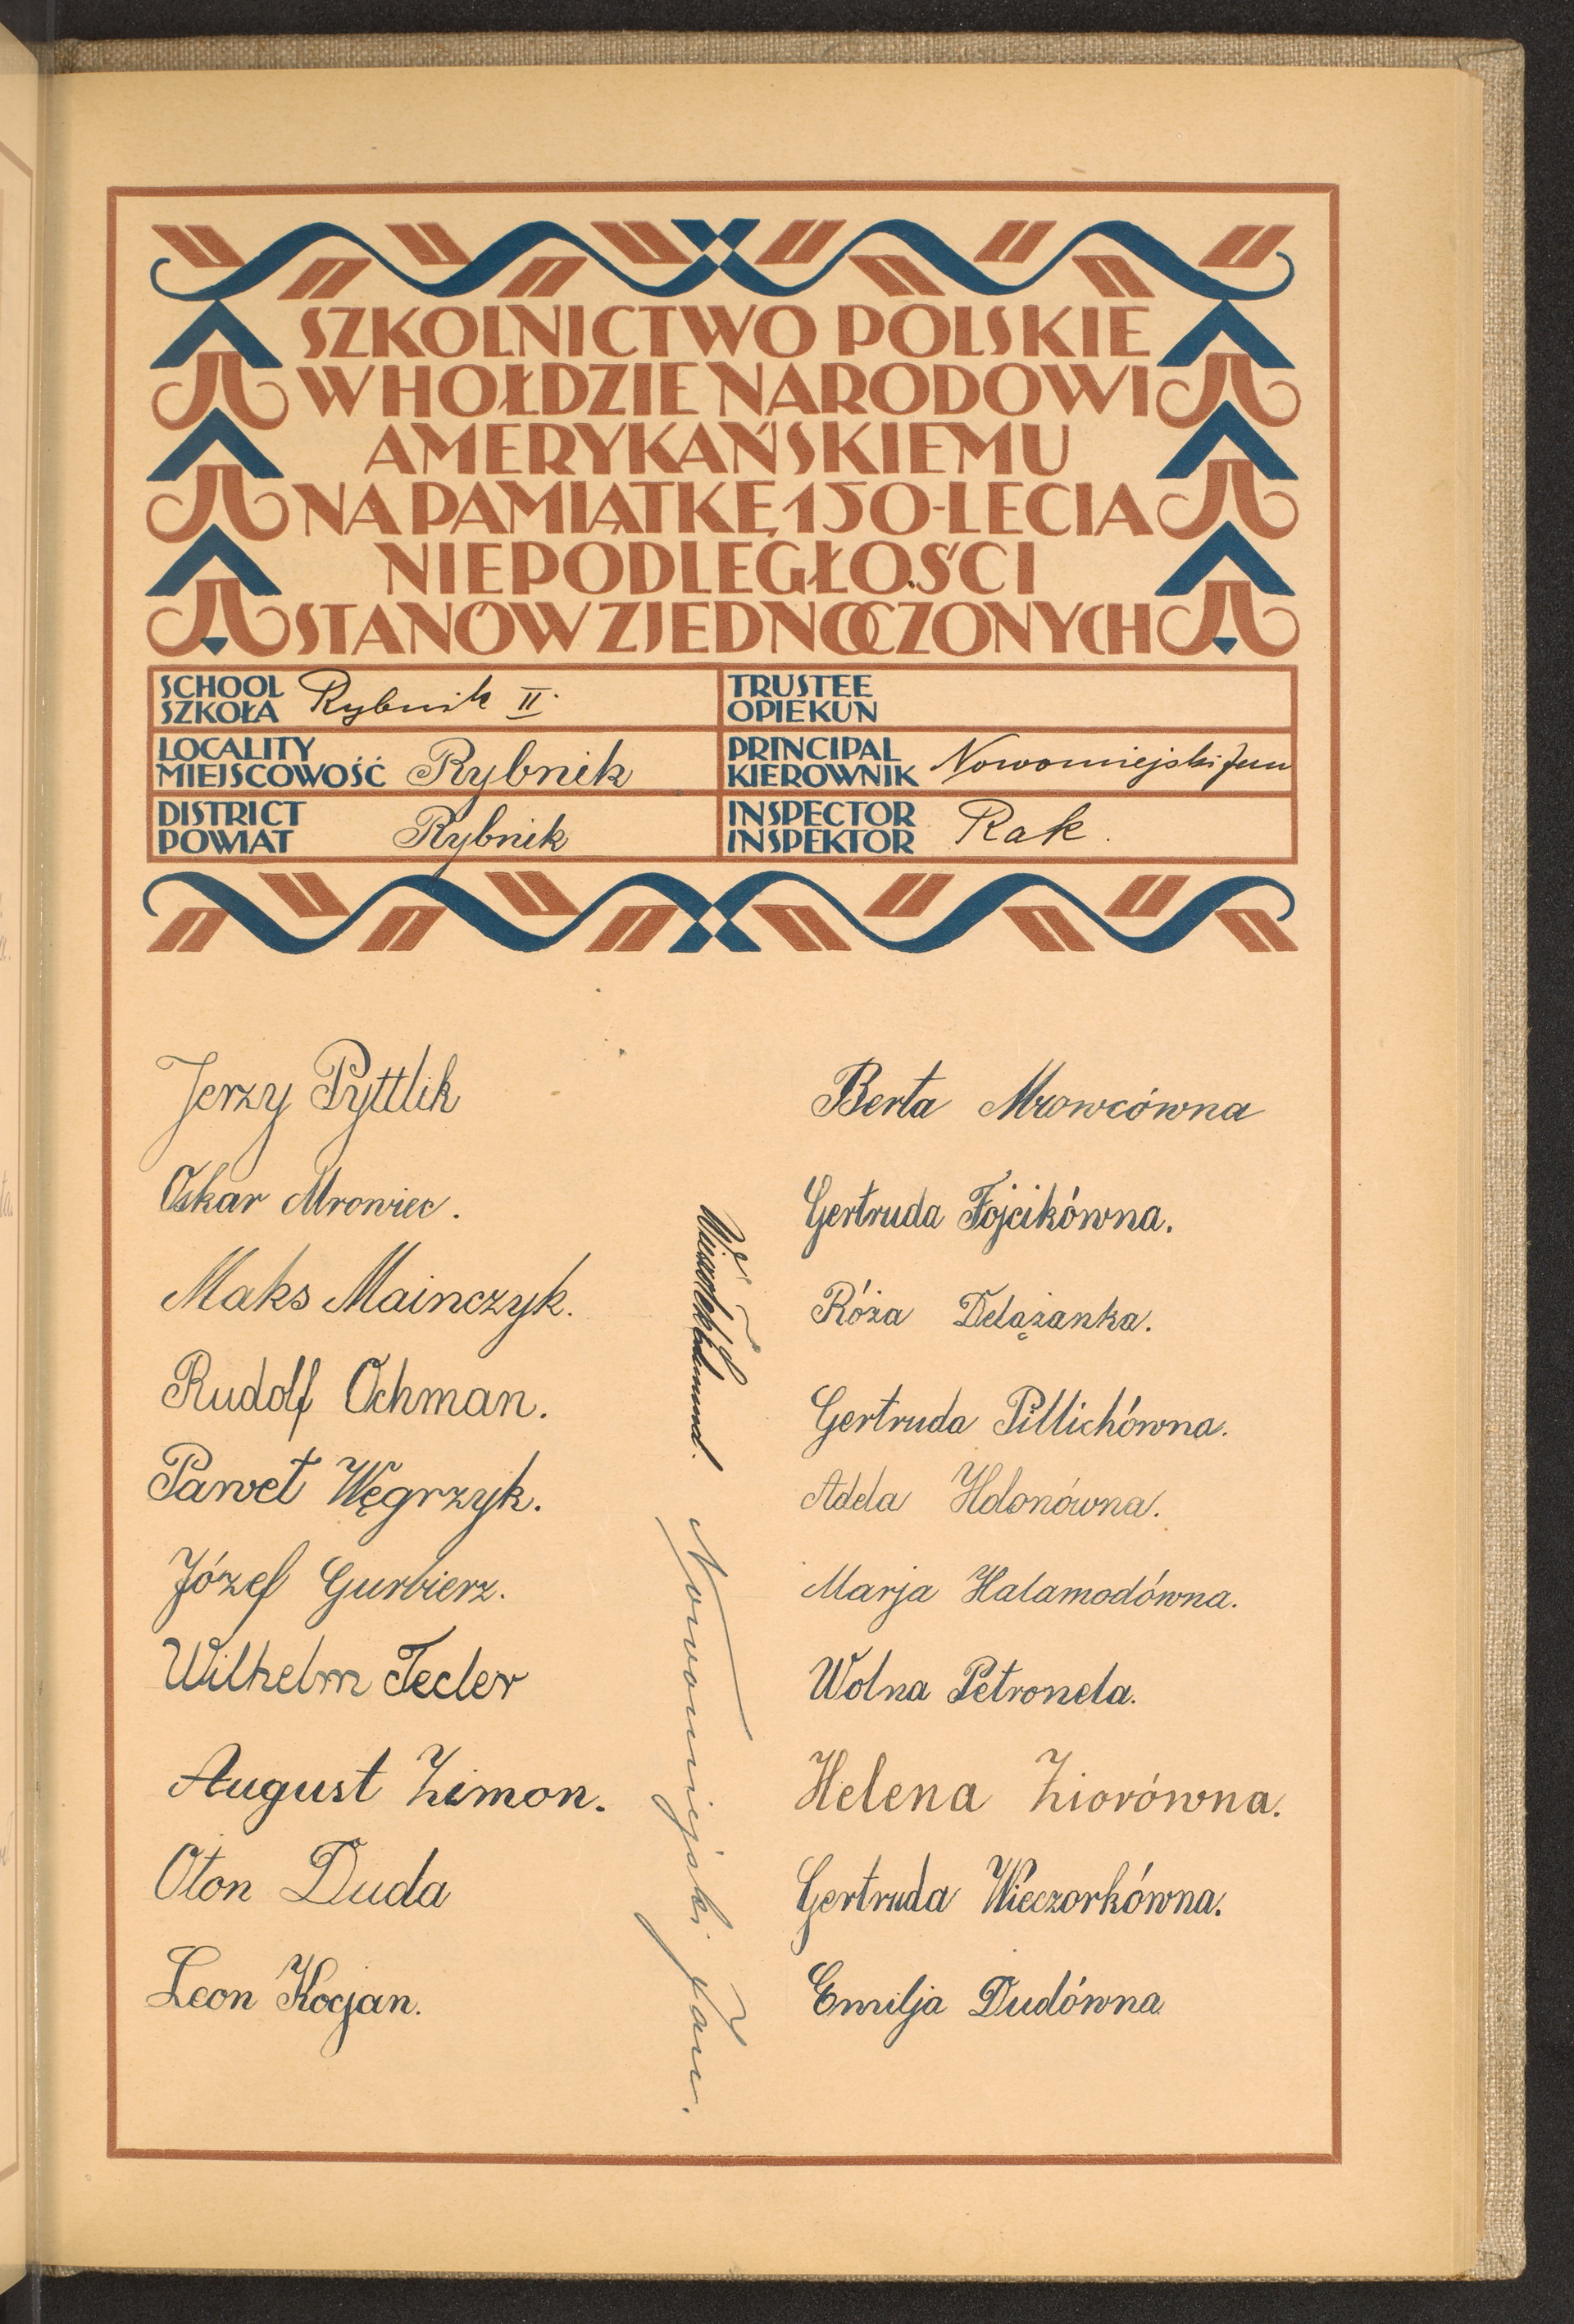 SZKOLNICTWO POLSKIE
W HOŁDZIE NARODOWI
AMERYKAŃSKIEMU
NA PAMIĄTKĘ 150-LECIA
NIEPODLEGŁOŚCI
STANÓW ZJEDNOCZONYCH
SCHOOL
SZKOŁA Rybnik II.
TRUSTEE
OPIEKUN
LOCALITY
MIEJSCOWOŚĆ Rybnik
PRINCIPAL
KIEROWNIK Nowomiejski Jan
DISTRICT
POWIAT Rybnik
INSPECTOR
INSPEKTOR Rak.
Jerzy Pyttlik
Oskar Mrowiec.
Maks Mainczyk.
Rudolf Ochman.
Paweł Węgrzyk.
Józef Gurbierz.
Wilhelm Tecler
August Zimon.
Oton Duda
Leon Kocjan.
Edmund.
Nowomiejski Jan.
Berta Mrowcówna
Gertruda Fojcikówna.
Róża Delążanka.
Gertruda Pillichówna.
Adela Holonówna.
Marja Halamodówna.
Wolna Petronela.
Helena Ziorówna.
Gertruda Wieczorkówna.
Emilja Dudówna